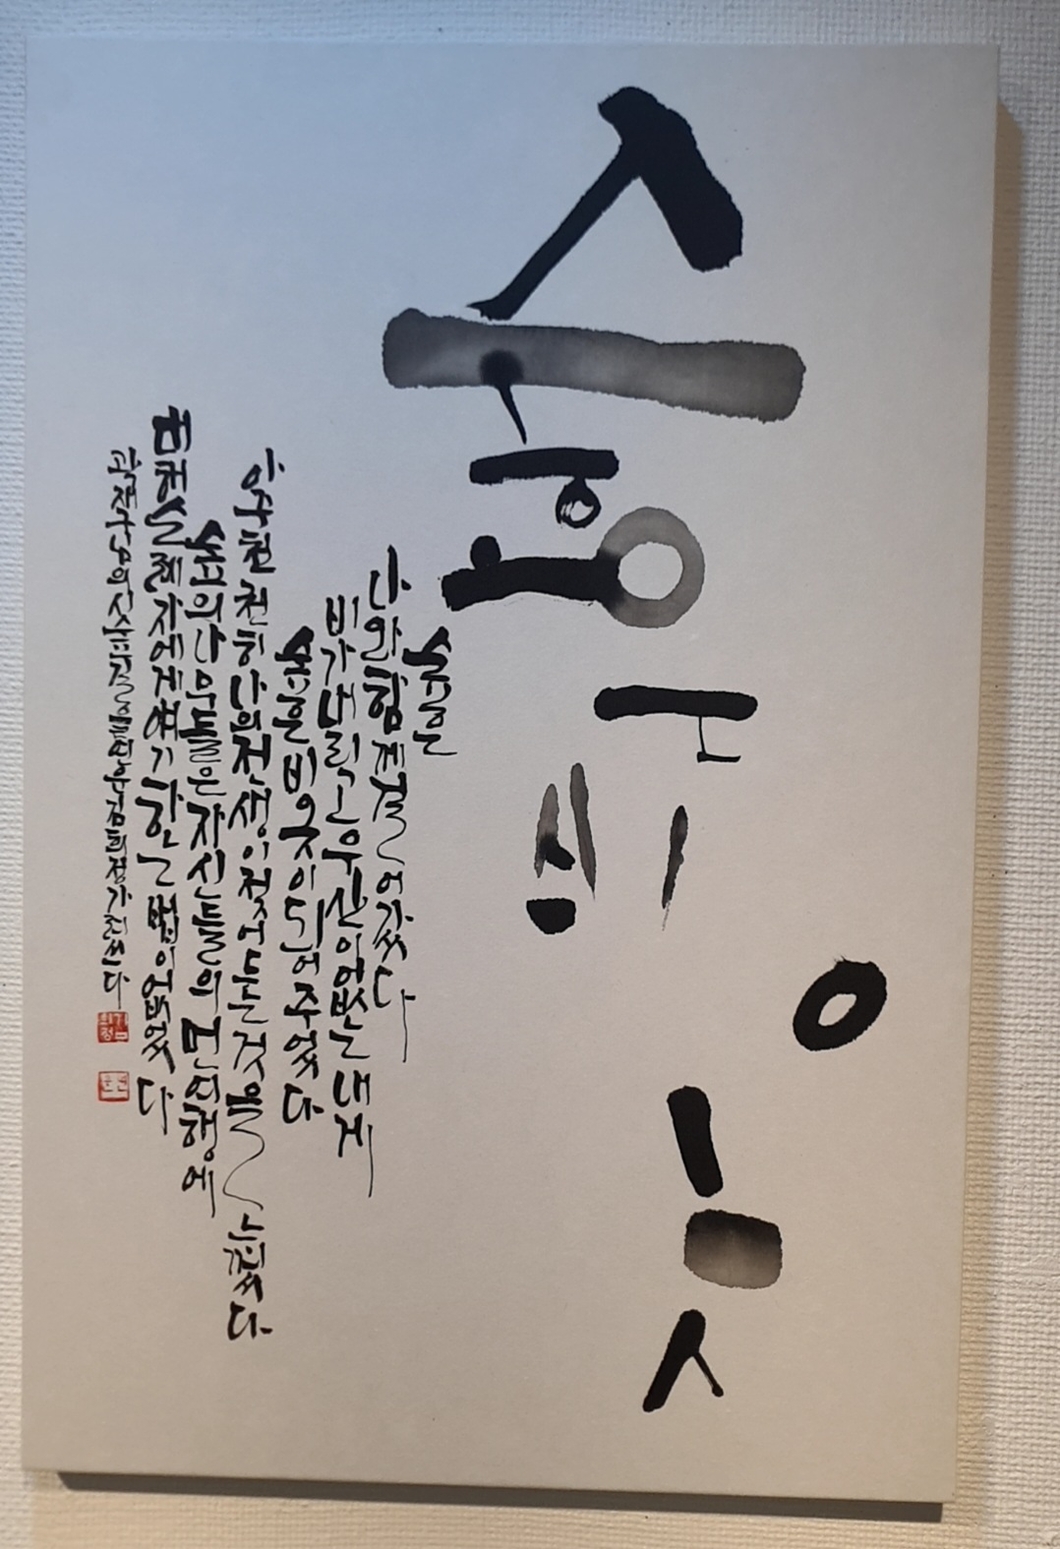 숲은 비옷
숲은
나와 함께 걸어갔다
비가 내리고 우산이 없는 내게
숲은 비옷이 되어 주었다
아주 천천히 나의 전생이 젖어드는 것을 느꼈다
숲의 나무들은 자신들의 먼 여행에
대해 순례자에게 얘기하는 법이 없었다
곽재구님의 시 숲길을 김희정 가려쓰다